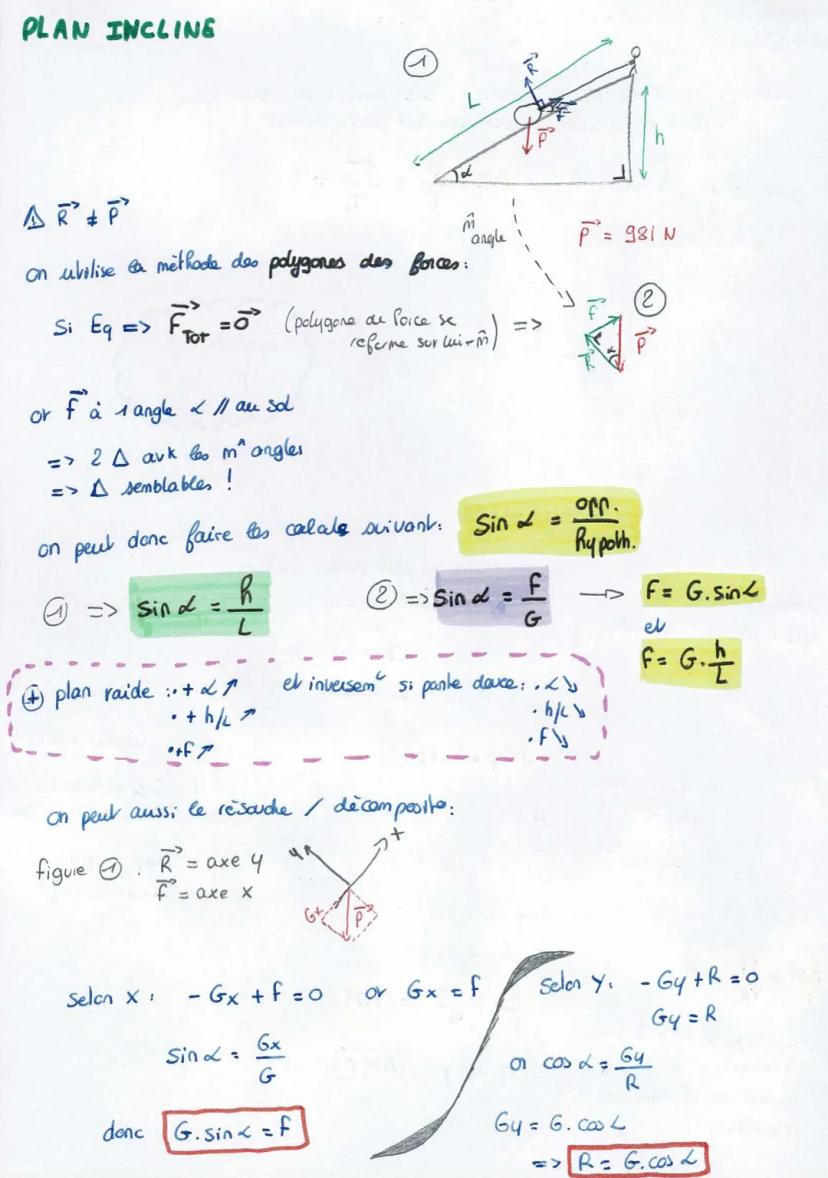 PLAN INCLINE
①
L
R
f
P
h
α
⚠ R ≠ P
m̂ angle
P = 981 N
on utilise la méthode des polygones des forces:
Si Eq => F Tot = 0 (polygone de force se referme sur lui-m̂) =>
②
f
P
R
α
or f à 1 angle α // au sol
=> 2 Δ avk les m^ angles
=> Δ semblables !
on peut donc faire les calculs suivant: Sin α = opp. / Hypoth.
① => sin α = h / L ② => Sin α = f / G → F = G.sin α
et
F = G. h / L
⊕ plan raide : • + α ↗ et inversemt si pente douce: • α ↘
• + h/L ↗ • h/L ↘
• + F ↗ • F ↘
on peut aussi le résoudre / décomposito:
figure ① : R = axe y
f = axe x
y
x
Gx
P
Selon x : - Gx + f = 0 or Gx = f
Sin α = Gx / G
donc G. sin α = f
Selon Y: - Gy + R = 0
Gy = R
or cos α = Gy / R
Gy = G. cos α
=> R = G.cos α